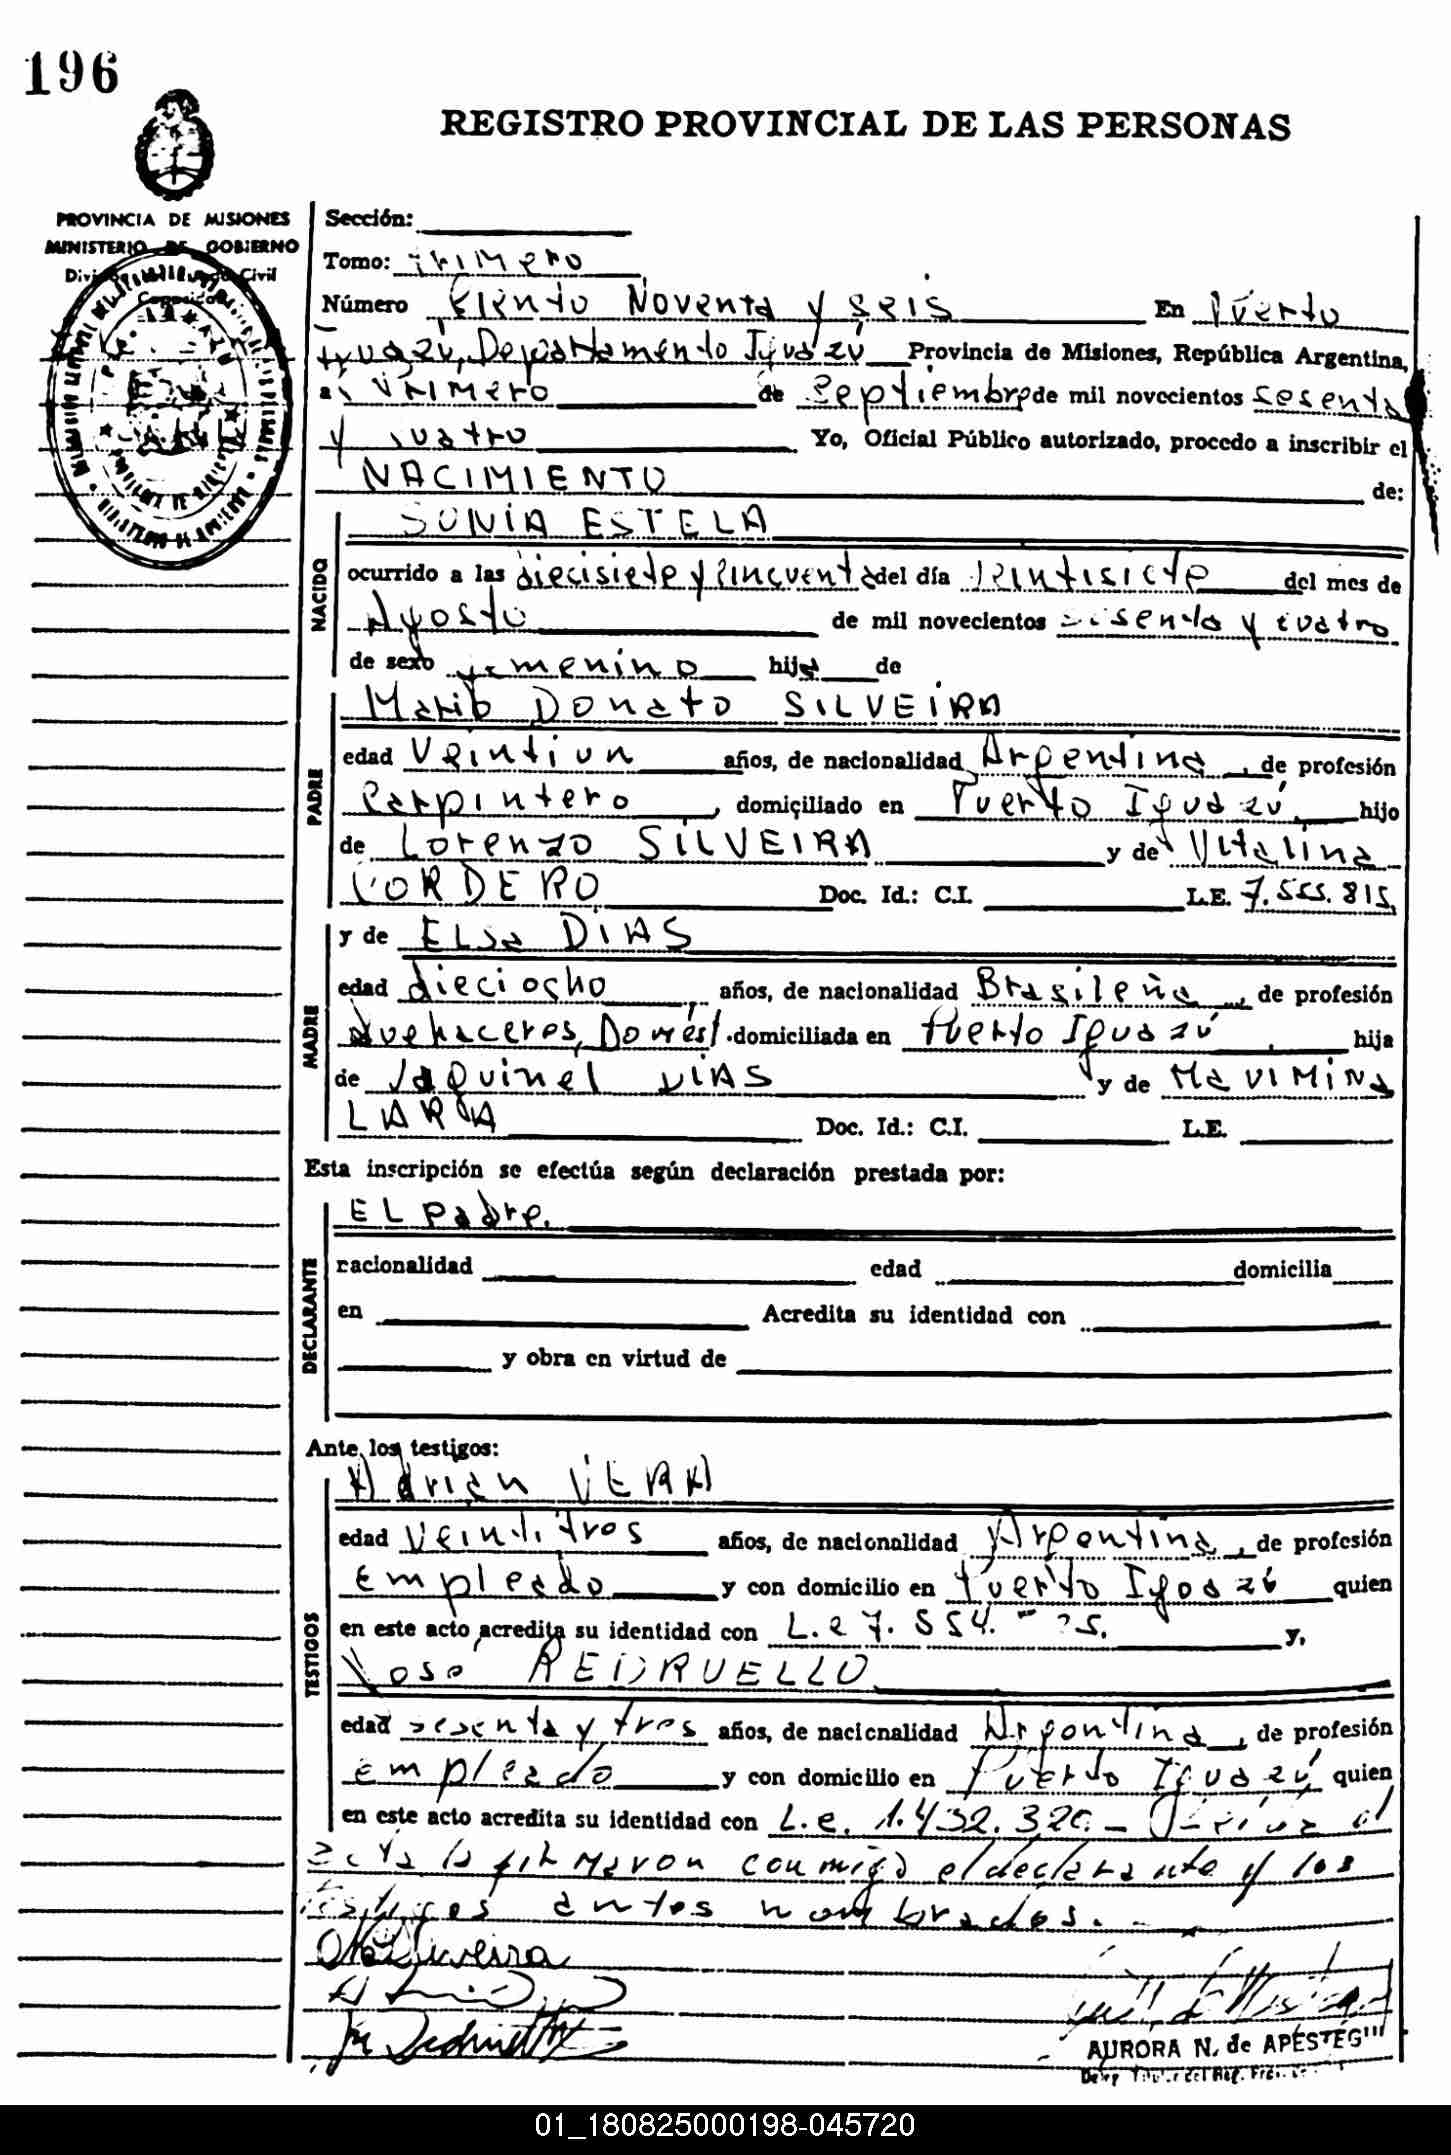 196
REGISTRO PROVINCIAL DE LAS PERSONAS
PROVINCIA DE MISIONES
MINISTERIO DE GOBIERNO
Sección:
Tomo: Primero
Número Ciento Noventa y seis En Puerto
Iguazú, Departamento Iguazú Provincia de Misiones, República Argentina,
a Primero de Septiembre de mil novecientos sesenta
y cuatro Yo, Oficial Público autorizado, procedo a inscribir el
NACIMIENTO de:
NACIDO
SONIA ESTELA
ocurrido a las diecisiete y cincuenta del día veintisiete del mes de
Agosto de mil novecientos sesenta y cuatro
de sexo femenino hija de
PADRE
Mario Donato SILVEIRA
edad Veintiun años, de nacionalidad Argentina, de profesión
Carpintero, domiciliado en Puerto Iguazú, hijo
de Lorenzo SILVEIRA y de Vitalina
CORDERO Doc. Id.: C.I. L.E. 7.555.815
MADRE
y de ELsa DIAS
edad dieciocho años, de nacionalidad Brasileña, de profesión
Quehaceres Domést. domiciliada en Puerto Iguazú, hija
de JaQuinel DIAS y de
LARA Doc. Id.: C.I. L.E.
Esta inscripción se efectúa según declaración prestada por:
DECLARANTE
EL Padre.
nacionalidad edad domicilia
en Acredita su identidad con
y obra en virtud de
Ante los testigos:
TESTIGOS
Adrian VERA
edad Veintitres años, de nacionalidad Argentina, de profesión
Empleado y con domicilio en Puerto Iguazú quien
en este acto acredita su identidad con L.e 7.554. y,
José REDRUELLO
edad sesenta y tres años, de nacionalidad Argentina, de profesión
empleado y con domicilio en Puerto Iguazú quien
en este acto acredita su identidad con L.e. 1.432.320.-
acta la firmaron conmigo el declarante y los
testigos antes nombrados.
AURORA N. de APESTEG
01_180825000198-045720